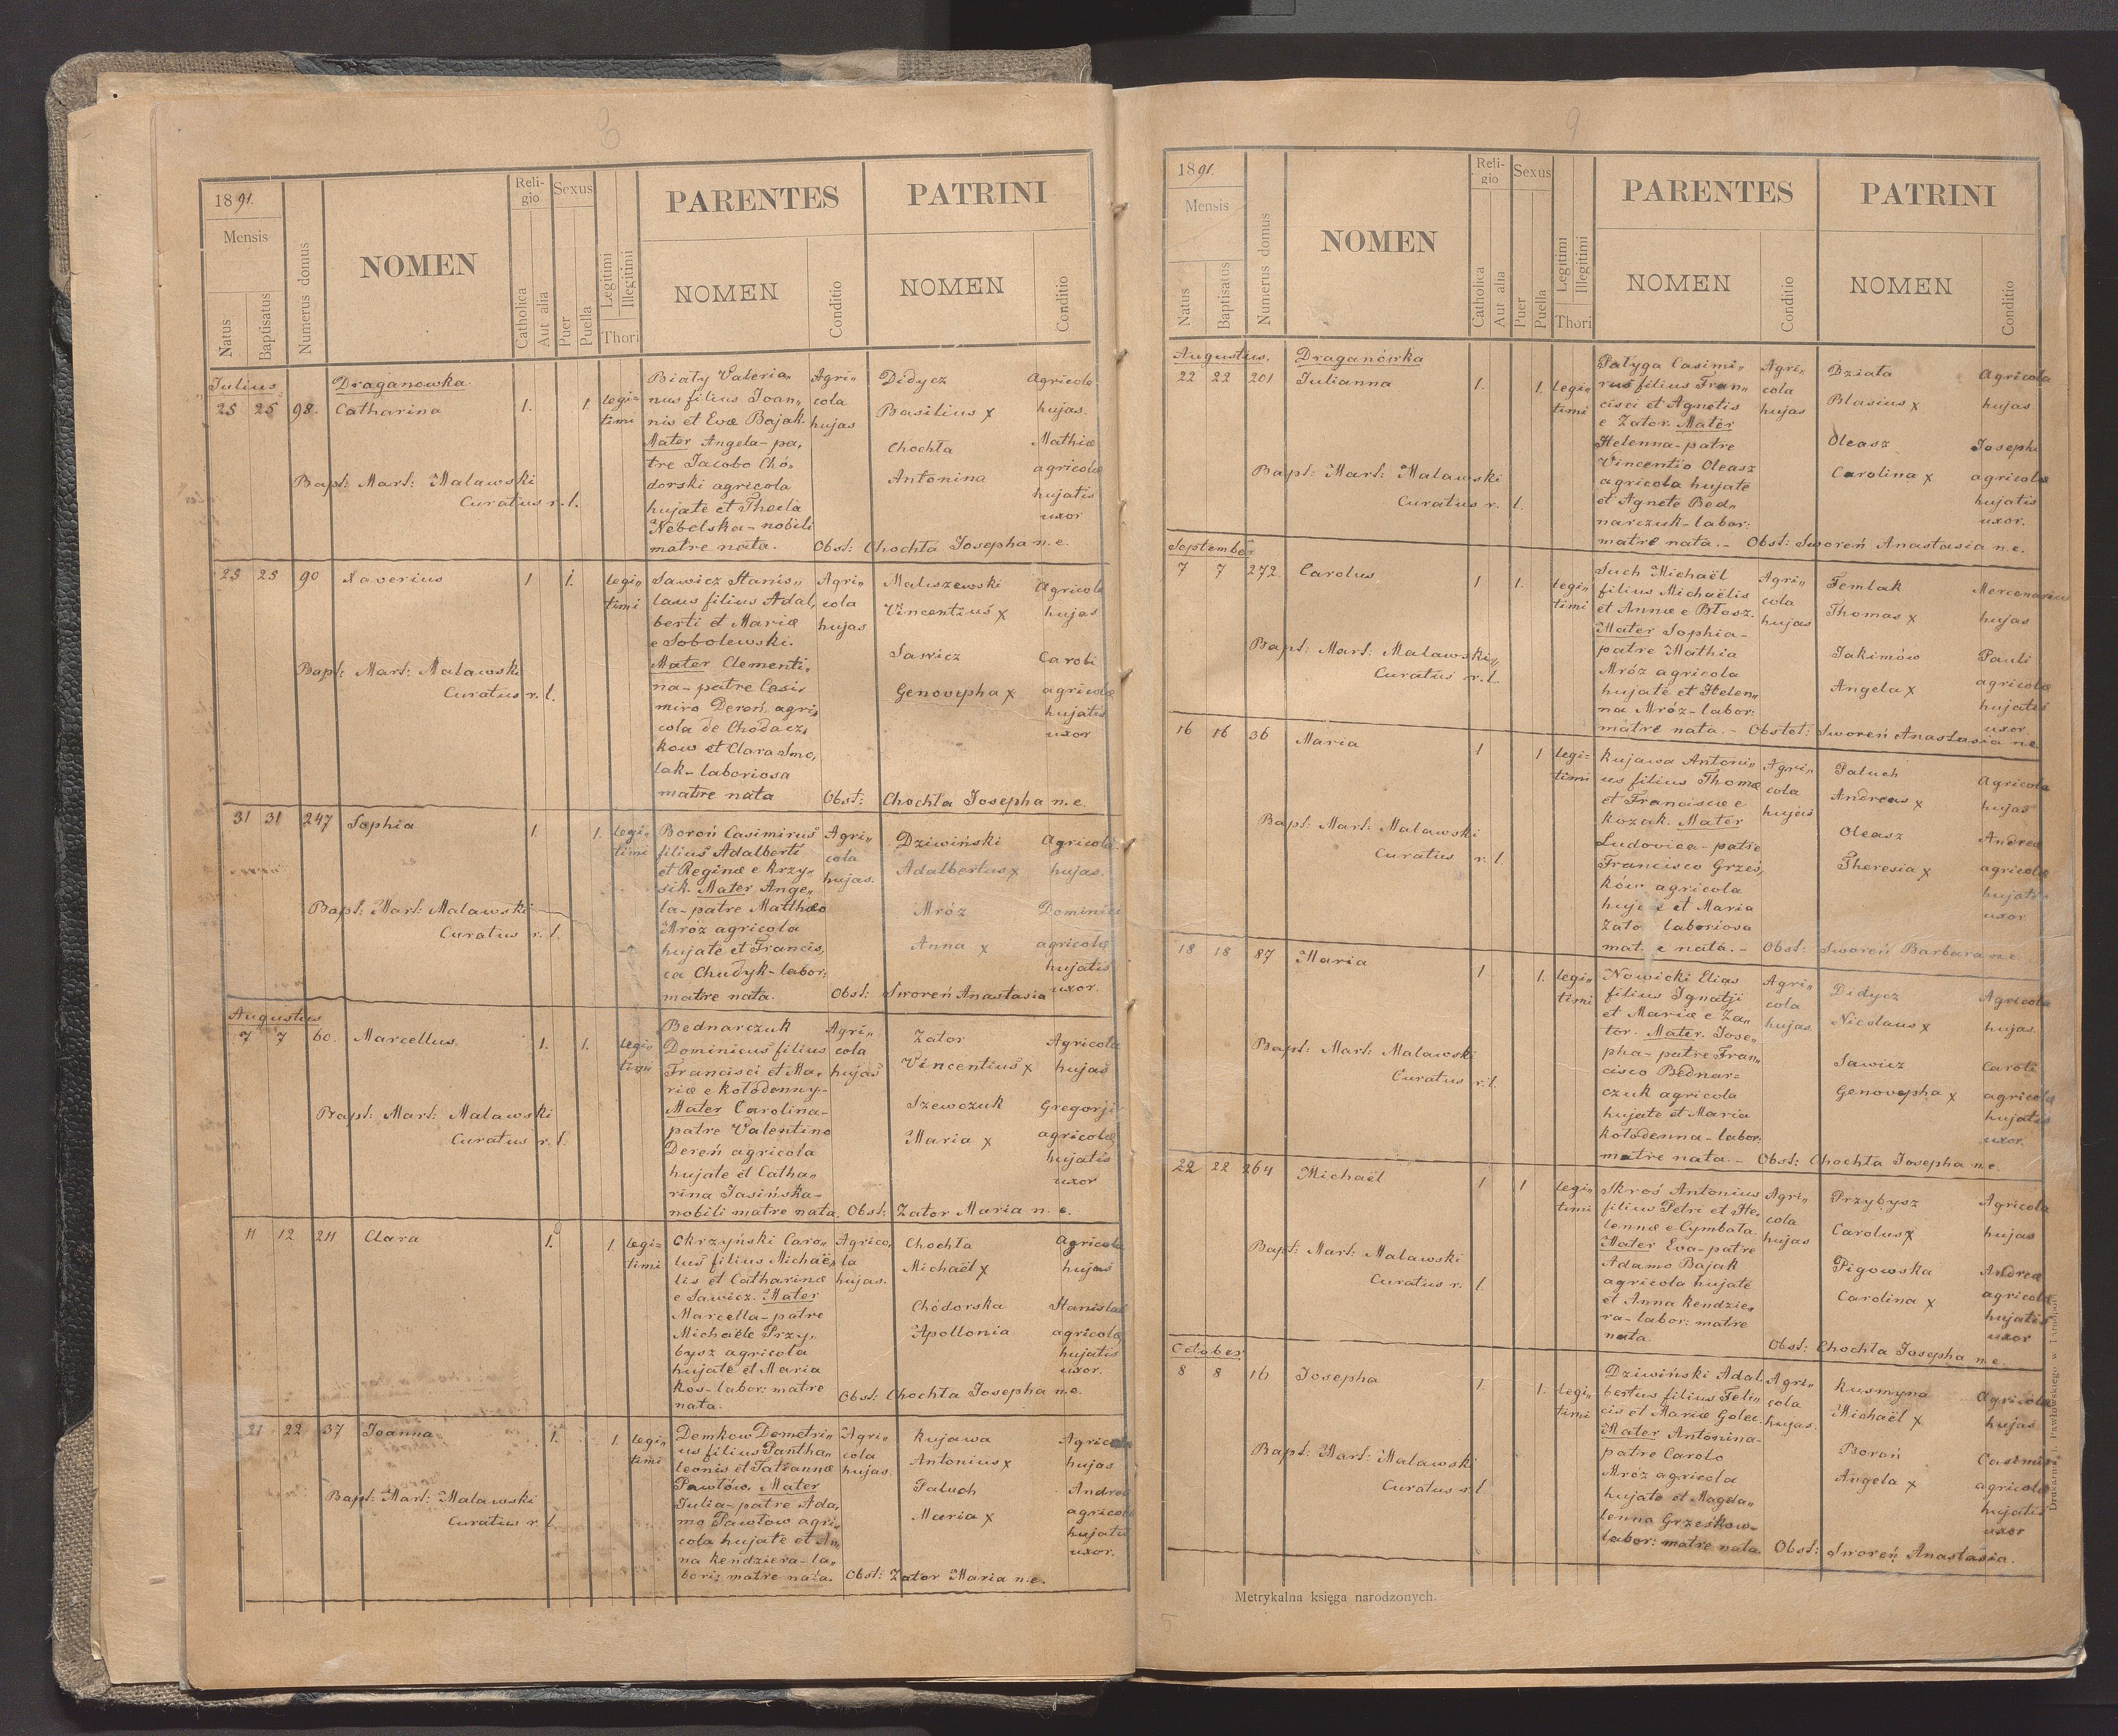 1891.
Mensis
Natus
Baptisatus
Numerus domus
NOMEN
Reli-
gio
Catholica
Aut alia
Sexus
Puer
Puella
Legitimi
Illegitimi
Thori
PARENTES
NOMEN
Conditio
PATRINI
NOMEN
Conditio
Julius
Draganowka.
25 25 98. Catharina 1. 1. legi-
timi
Biały Valeria„
nus filius Joan„
nis et Evæ Bajak.
Mater Angela-pa„
tre Jacobo Chó„
dorski agricola
hujate et Thecla
Nebelska-nobili
matre nata.
Agri„
cola
hujas
Didycz
Basilius x
Chochla
Antonina
Agricola
hujas.
Mathiæ
agricolæ
hujatis
uxor
Bapt: Mart: Malawski
Curatus r. l.
Obst: Chochla Josepha n.e.
25 25 90 Xaverius 1 1. legi„
timi
Sawicz Stanis„
laus filius Adal„
berti et Mariæ
e Sobolewski.
Mater Clementi„
na-patre Casi„
miro Dereń agri„
cola de Chodacz„
kow et Clara Smo„
lak-laboriosa
matre nata
Agri„
cola
hujas
Maluszewski
Vincentius x
Sawicz
Genovepha x
Agricola
hujas
Caroli
agricolæ
hujatis
uxor
Bapt: Mart: Malawski
Curatus r. l.
Obst: Chochla Josepha n.e.
31 31 247 Sophia 1. 1. legi„
timi
Boroń Casimirus
filius Adalberti
et Reginæ e Krzy„
sik. Mater Ange„
la-patre Matthæo
Mróz agricola
hujate et Francis„
ca Chudyk-labor:
matre nata.
Agri„
cola
hujas.
Dziwiński
Adalbertus x
Mróz
Anna x
Agricola
hujas.
Dominici
agricolæ
hujatis
uxor.
Bapt: Mart: Malawski
Curatus r. l.
Obst: Sworeń Anastasia
Augustus
7 7 60. Marcellus. 1. 1. legi„
timi
Bednarczuk
Dominicus filius
Francisci et Ma„
riæ e Kołodenny-
Mater Carolina-
patre Valentino
Dereń agricola
hujate et Catha„
rina Jasińska-
nobili matre nata.
Agri„
cola
hujas
Zator
Vincentius x
Szewczuk
Maria x
Agricola
hujas
Gregorji
agricolæ
hujatis
uxor
Bapt: Mart: Malawski
Curatus r. l.
Obst: Zator Maria n. e.
11 12 211 Clara 1. 1. legi-
timi
Okrzyński Caro„
lus filius Michaë„
lis et Catharinæ
e Sawicz. Mater
Marcella-patre
Michaële Przy„
bysz agricola
hujate et Maria
Kos-labor: matre
nata.
Agrico„
la
hujas.
Chochla
Michaël x
Chódorska
Apollonia
Agricola
hujas
Stanislai
agricolæ
hujatis
uxor.
Obst: Chochla Josepha n.e.
21 22 37 Joanna 1. 1. legi„
timi
Demkow Demetri„
us filius Pantha„
leonis et Tatiannæ
Pawłów. Mater
Julia-patre Ada„
mo Pawłow agri„
cola hujate et An„
na Kendziera-la„
boris matre nata.
Agri„
cola
hujas.
Kujawa
Antonius x
Paluch
Maria x
Agricola
hujas
Andreæ
agricolæ
hujatis
uxor.
Bapt: Mart: Malawski
Curatus r. l.
Obst: Zator Maria n.e.
9
1891.
Mensis
Natus
Baptisatus
Numerus domus
NOMEN
Reli-
gio
Catholica
Aut alia
Sexus
Puer
Puella
Legitimi
Illegitimi
Thori
PARENTES
NOMEN
Conditio
PATRINI
NOMEN
Conditio
Augustus.
Draganówka
22 22 201 Julianna 1. 1. legi„
timi
Patyga Casimi„
rus filius Fran„
cisci et Agnetis
e Zator. Mater
Helenna-patre
Vincentio Oleasz
agricola hujate
et Agnete Bed„
narczuk-labor:
matre nata.-
Agri„
cola
hujas
Działa
Blasius x
Oleasz
Carolina x
Agricola
hujas
Josephi
agricolæ
hujatis
uxor.
Bapt: Mart: Malawski
Curatus r. l.
Obst: Sworeń Anastasia n.e.
September
7 7 272 Carolus 1 1. legi„
timi
Such Michaël
filius Michaëlis
et Annæ e Błosz.
Mater Sophia-
patre Mathia
Mróz agricola
hujate et Helen„
na Mróz-labor:
matre nata.-
Agri„
cola
hujas
Temlak
Thomas x
Jakimów
Angela x
Mercenarius
hujas
Pauli
agricolæ
hujatis
uxor.
Bapt: Mart: Malawski
Curatus r. l.
Obstet: Sworeń Anastasia n.e.
16 16 36 Maria 1 1 legi-
timi
Kujawa Antoni„
us filius Thomæ
et Franciscæ e
Kozak. Mater
Ludovica-patre
Francisco Grześ„
ków agricola
hujate et Maria
Zator laboriosa
matre nata.-
Agri„
cola
hujas
Paluch
Andreas x
Oleasz
Theresia x
Agricola
hujas
Andreæ
agricolæ
hujatis
uxor
Bapt: Mart: Malawski
Curatus r. l.
Obst: Sworeń Barbara n.e.
18 18 87 Maria 1 1. legi„
timi
Nowicki Elias
filius Ignatji
et Mariæ e Za„
tor. Mater. Jose„
pha-patre Fran„
cisco Bednar=
czuk agricola
hujate et Maria
Kołodenna-labor:
matre nata.-
Agri„
cola
hujas.
Didycz
Nicolaus x
Sawicz
Genovepha x
Agricola
hujas.
Caroli
agricolæ
hujatis
uxor.
Bapt: Mart: Malawski
Curatus r. l.
Obst: Chochla Josepha n.e.
22 22 264 Michaël 1 1 legi„
timi
Skroś Antonius
filius Petri et He„
lennæ e Cymbała.
Mater Eva-patre
Adamo Bajak
agricola hujate
et Anna Kendzie„
ra-labor: matre
nata.
Agri„
cola
hujas
Przybysz
Carolus x
Pigowska
Carolina x
Agricola
hujas
Andreæ
agricolæ
hujatis
uxor
Bapt: Mart: Malawski
Curatus r. l.
Obst: Chochla Josepha n.e.
October
8 8 16 Josepha 1. 1. legi„
timi
Dziwiński Adal„
bertus filius Feli„
cis et Mariæ Golec.
Mater Antonina-
patre Carolo
Mróz agricola
hujate et Magda„
lenna Grześkow-
labor: matre nata.
Agri„
cola
hujas.
Kusmyna
Michaël x
Boroń
Angela x
Agricola
hujas
Casimiri
agricolæ
hujatis
uxor
Bapt: Mart: Malawski
Curatus r. l.
Obst: Sworeń Anastasia.
Metrykalna księga narodzonych.